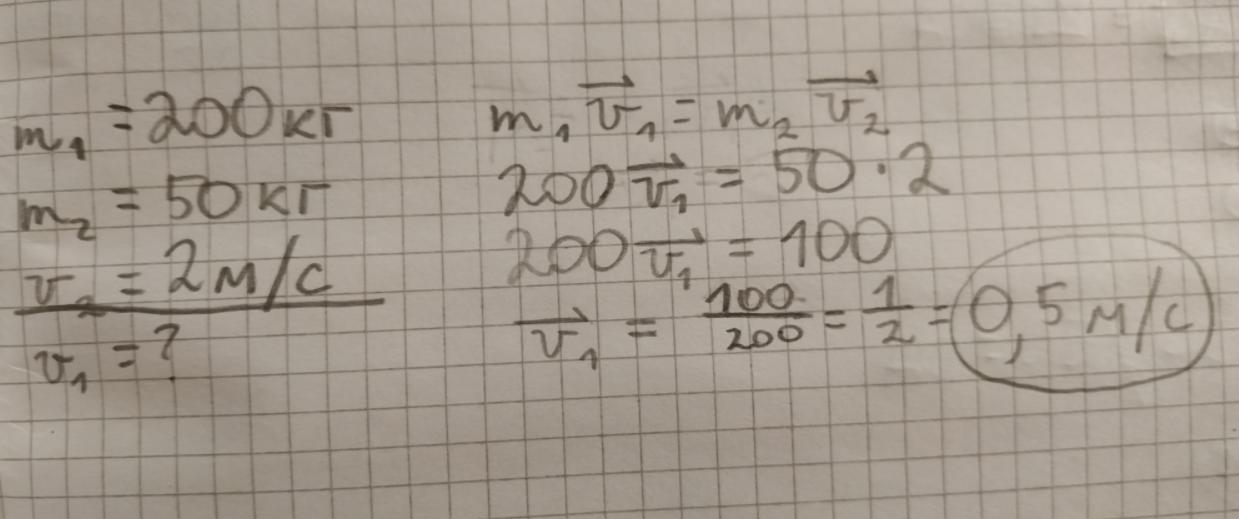 m₁ = 200 кг
m₂ = 50 кг
v₂ = 2 м/с
v₁ = ?
m₁v⃗₁ = m₂v⃗₂
200v⃗₁ = 50 · 2
200v⃗₁ = 100
v⃗₁ = 100/200 = 1/2 = 0,5 м/с